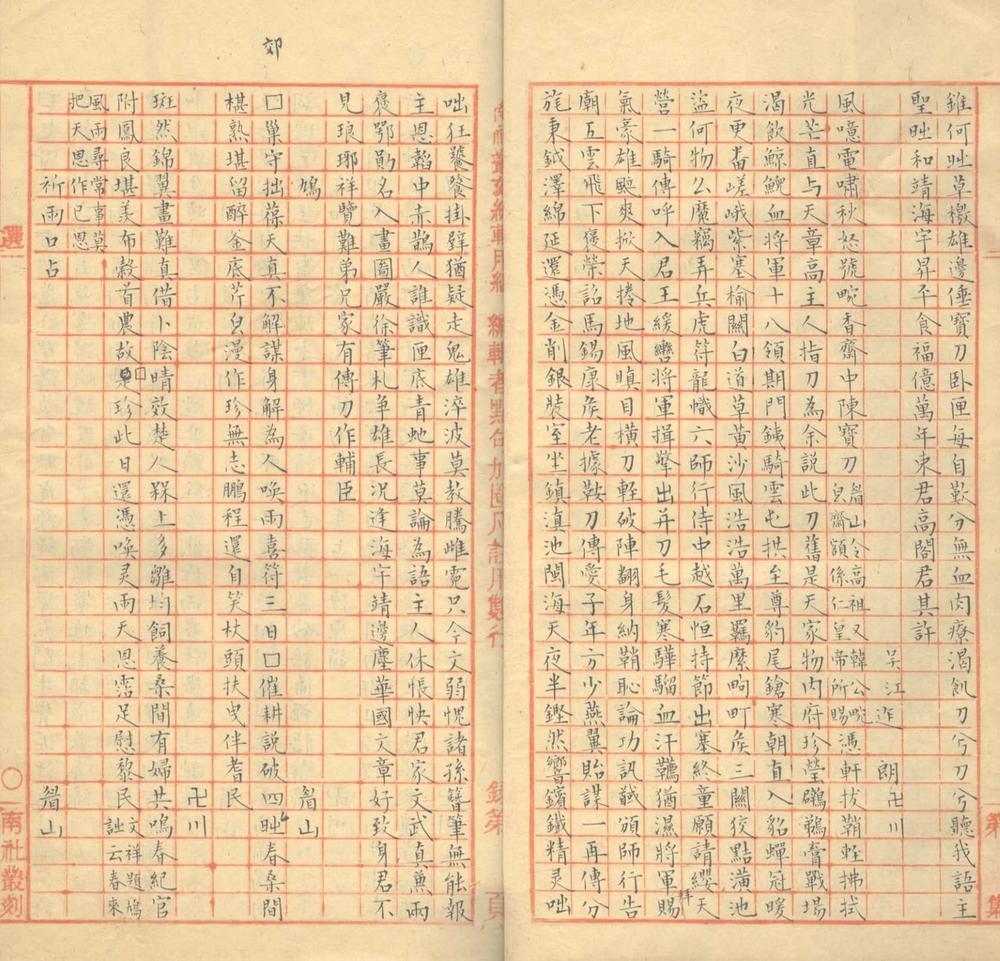 錐何𣅜草檄雄邊倕寶刀卧匣每自歎兮無血肉療渴飢刀兮刀兮聽我語主
聖𣅜和靖海宇昇平食福億萬年東君高閣君其許
吳江 迮朗 卍川
風噫雷嘯秋怒號畹香齋中陳寶刀𥇛山令高祖又韓公畹皃齋額係仁皇帝所賜憑軒拔鞘輕拂拭
光芒直与天章高主人指刀為余説此刀舊是天家物内府珍瑩鸊鵜膏戰場
渴飲鯨鯢血將軍十八領期門銕騎雲屯拱至尊豹尾鎗寒朝直入貂蟬冠暖
夜更番嵯峨紫塞榆關白道草黄沙風浩浩萬里羈縻畇町矦三關狡點潢池
盜何物么魔竊弄兵虎符龍幟六師行侍中越石恒持節出塞終童願請纓天
營一騎傳呼入君王緩轡將軍揖拏出并刀毛髮寒驊騮血汗韉猶濕將軍賜
氣豪雄颷爽掀天捲地風瞋目橫刀輕破陣翻身納鞘恥論功訊馘頒師行告
廟五雲飛下褒榮詔馬錫康矦老據鞍刀傳愛子年方少燕翼貽謀一再傳分
旄秉鉞澤綿延還憑金削銀裝室坐鎮滇池閩海天夜半鏗然響鑌鐵精灵咄
拜
咄狂饕餮掛壁猶疑走鬼雄淬波莫教騰雌霓只今文弱愧諸孫簪筆無能報
主恩韜中赤鵲人誰識匣底青虵事莫論為語主人休悵怏君家文武真兼兩
褒鄂勛名入畫圖嚴徐筆札牟雄長況逢海宇靖邊塵華國文章好致身君不
見琅琊祥覽難弟兄家有傳刀作輔臣
鳩 𥇛山
口巢守拙葆天真不解謀身解為人喚雨喜符三日口催耕説破四𣅜春桑間
椹熟堪留醉釜底芹皃漫作珍無志鵬程還自笑杖頭扶曳伴耆民
卍川
斑然錦翼畫難真借卜陰晴效楚人槑上多雛均飼養桑間有婦共鳴春紀官
附鳳良堪羡布穀首農故口珍此日還憑喚灵雨天恩霑足慰黎民文祥題鳩詘云春來
風雨尋常事莫把天恩作已恩
祈雨口占 𥇛山
郊
選 〇 南社叢刻
第 集